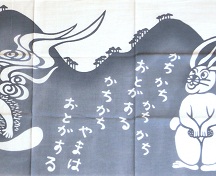 かちかち
かちかち
おとがする
かちかち
おとがする
やまは